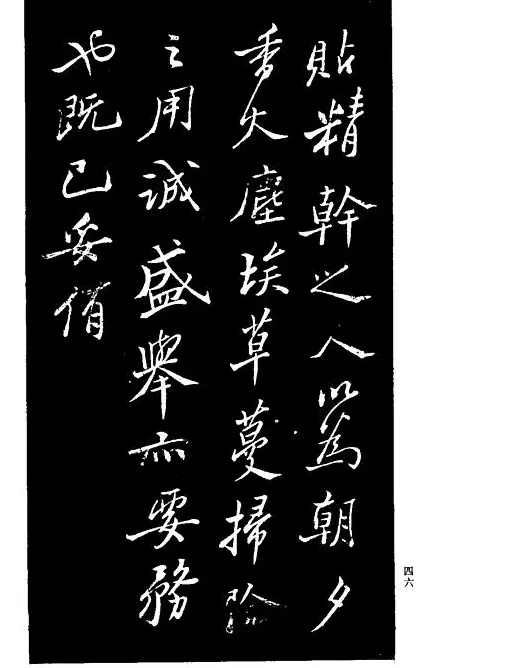 貼精幹之人以為朝夕
香火塵埃草蔓掃除
之用誠盛舉亦要務
也既已妥俏
四六